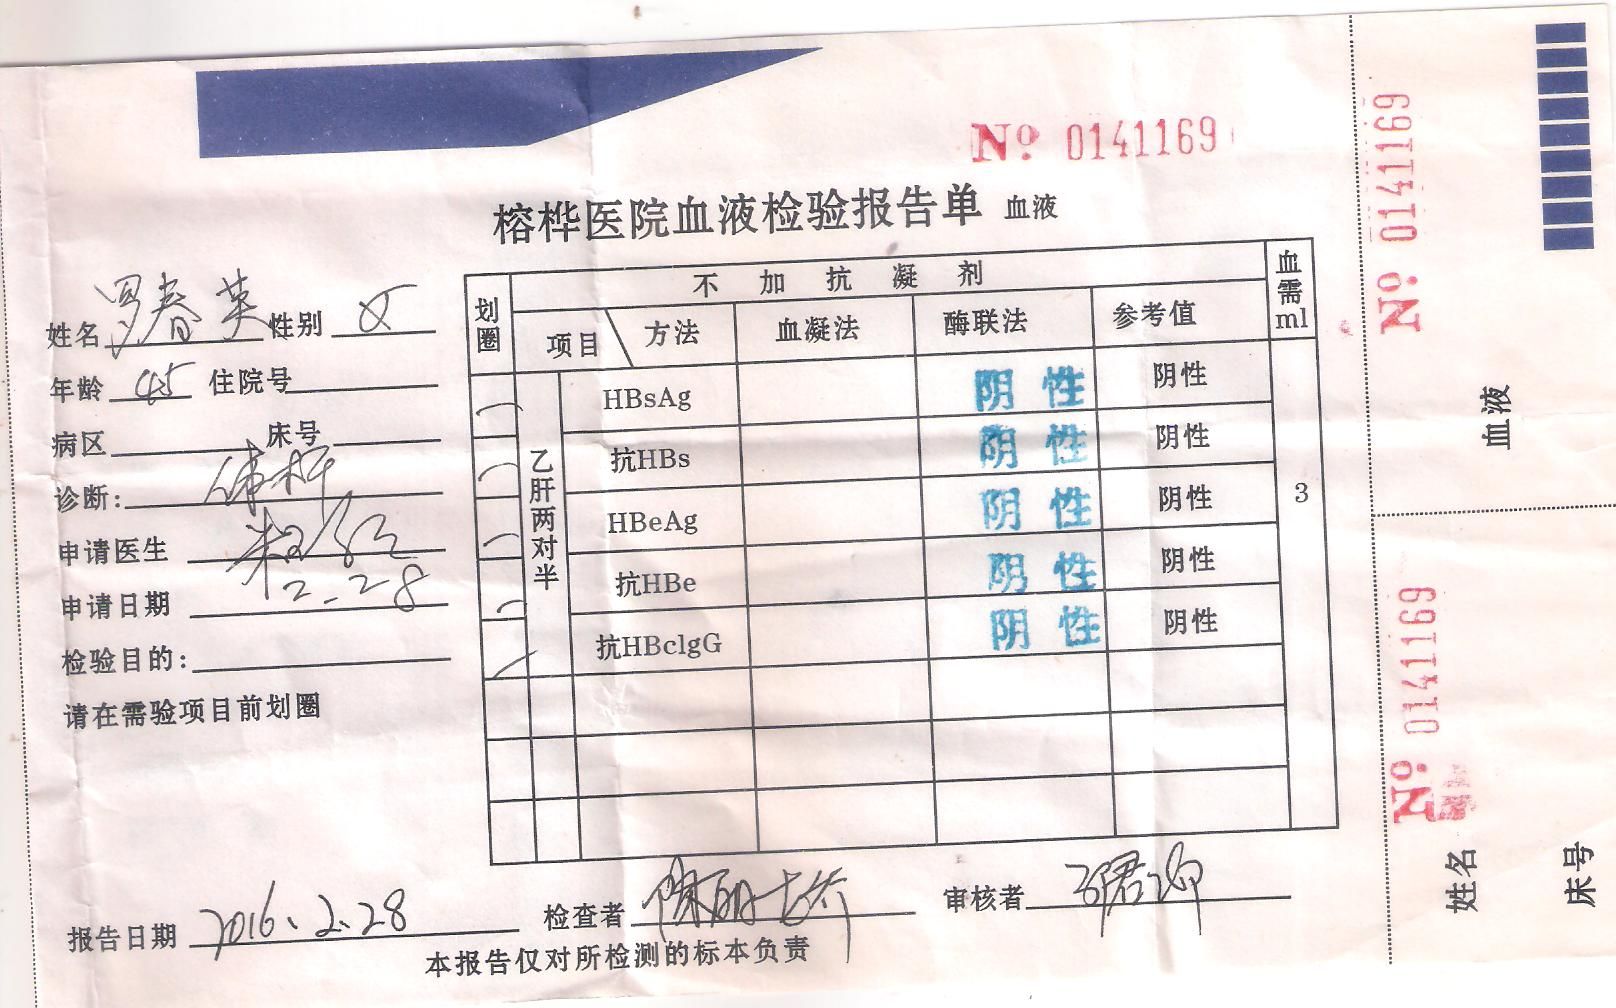 No. 0141169
榕桦医院血液检验报告单 血液
姓名 罗春英 性别 女
年龄 45 住院号
病区 床号
诊断: 体检
申请医生
申请日期 2.28
检验目的:
请在需验项目前划圈
划圈 不加抗凝剂 血需ml
项目 方法 血凝法 酶联法 参考值
乙肝两对半 3
HBsAg 阴性 阴性
抗HBs 阴性 阴性
HBeAg 阴性 阴性
抗HBe 阴性 阴性
抗HBclgG 阴性 阴性
报告日期 2016.2.28 检查者 审核者
本报告仅对所检测的标本负责
No. 0141169
血液
No. 0141169
姓名
床号